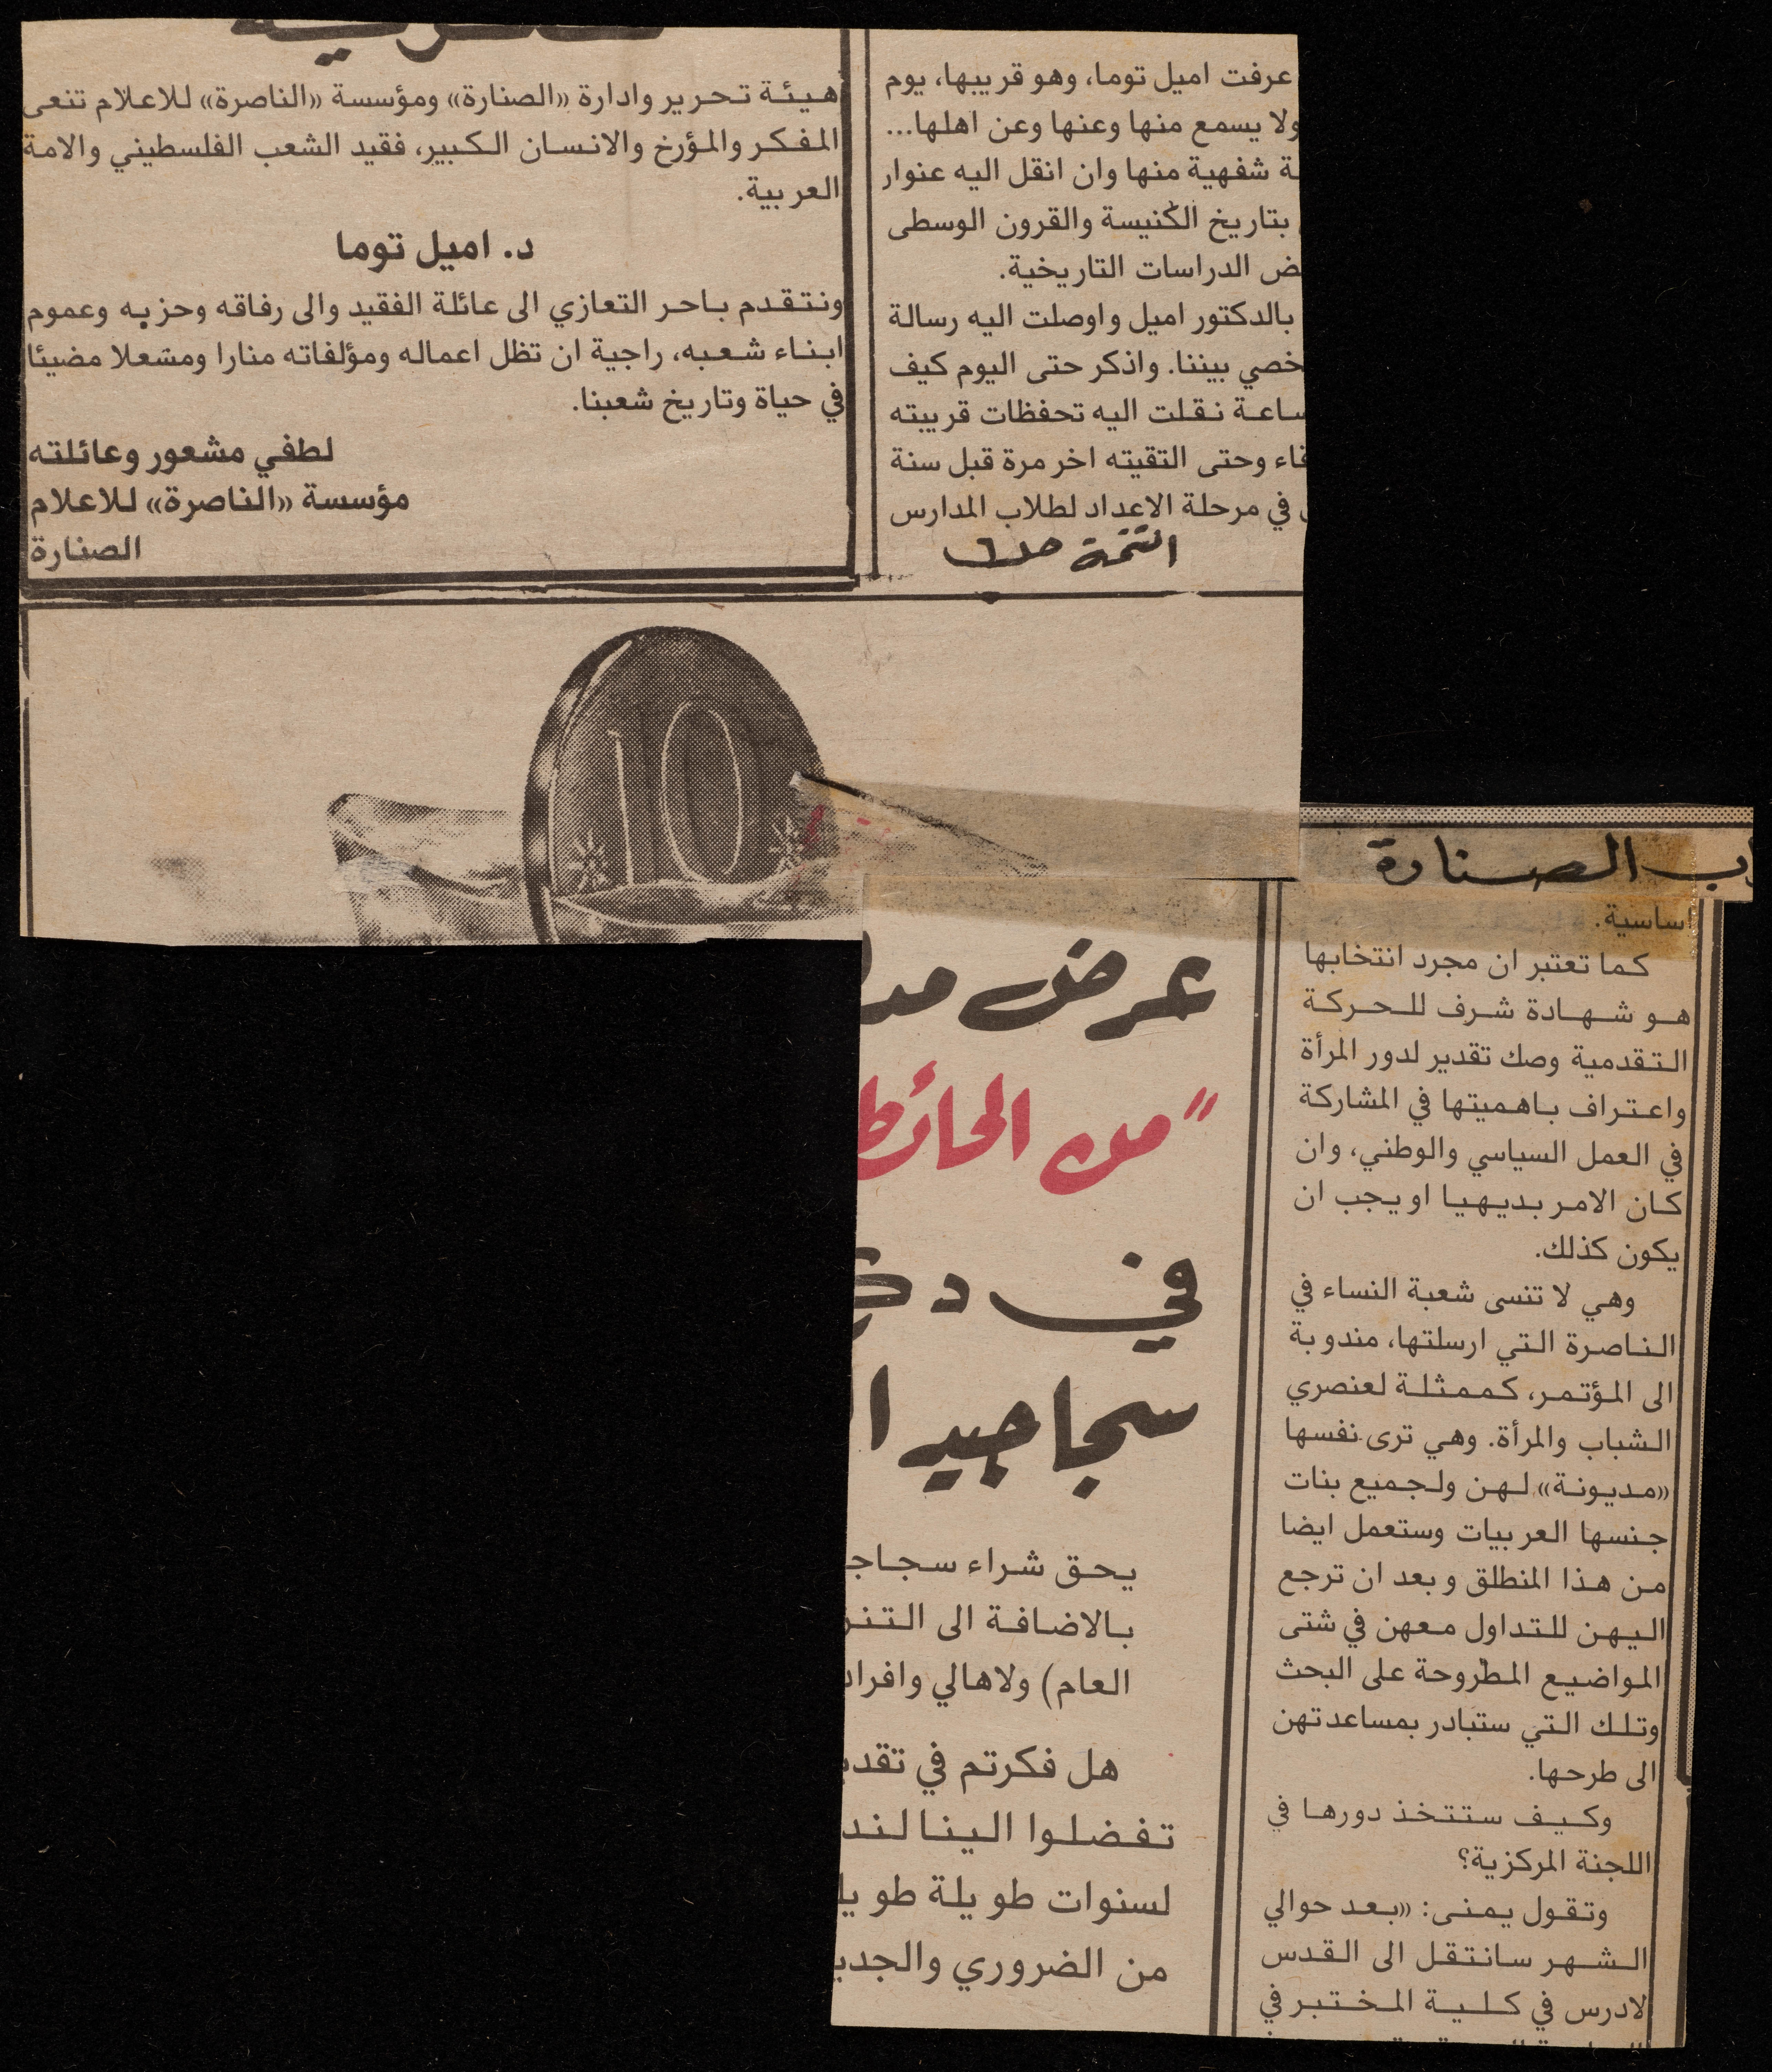 عرفت اميل توما، وهو قريبها، يوم
ولا يسمع منها وعنها وعن اهلها...
ة شفهية منها وان انقل اليه عنوار
بتاريخ الكنيسة والقرون الوسطى
ض الدراسات التاريخية.
بالدكتور اميل واوصلت اليه رسالة
خصي بيننا. واذكر حتى اليوم كيف
ساعة نقلت اليه تحفظات قريبته
قاء وحتى التقيته اخر مرة قبل سنة
في مرحلة الاعداد لطلاب المدارس
التتمة ص٦
هيئة تحرير وادارة «الصنارة» ومؤسسة «الناصرة» للاعلام تنعى
المفكر والمؤرخ والانسان الكبير، فقيد الشعب الفلسطيني والامة
العربية.
د. اميل توما
ونتقدم باحر التعازي الى عائلة الفقيد والى رفاقه وحزبه وعموم
ابناء شعبه، راجية ان تظل اعماله ومؤلفاته منارا ومشعلا مضيئا
في حياة وتاريخ شعبنا.
لطفي مشعور وعائلته
مؤسسة «الناصرة» للاعلام
الصنارة
10
ب الصنارة
اساسية.
كما تعتبر ان مجرد انتخابها
هو شهادة شرف للحركة
التقدمية وصك تقدير لدور المرأة
واعتراف باهميتها في المشاركة
في العمل السياسي والوطني، وان
كان الامر بديهيا او يجب ان
يكون كذلك.
وهي لا تنسى شعبة النساء في
الناصرة التي ارسلتها، مندوبة
الى المؤتمر، كممثلة لعنصري
الشباب والمرأة. وهي ترى نفسها
«مديونة» لهن ولجميع بنات
جنسها العربيات وستعمل ايضا
من هذا المنطلق وبعد ان ترجع
اليهن للتداول معهن في شتى
المواضيع المطروحة على البحث
وتلك التي ستبادر بمساعدتهن
الى طرحها.
وكيف ستتخذ دورها في
اللجنة المركزية؟
وتقول يمنى: «بعد حوالي
الشهر سانتقل الى القدس
لادرس في كلية المختبر في
عرض مد
"من الحائط
في دك
سجاجيد ا
يحق شراء سجاج
بالاضافة الى التنز
العام) ولاهالي وافراد
هل فكرتم في تقد
تفضلوا الينا لند
لسنوات طويلة طويل
من الضروري والجدي